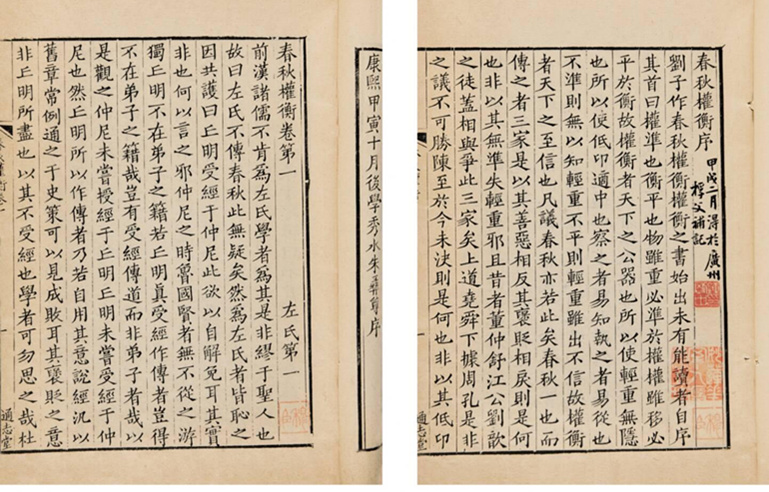 春秋權衡序
甲戌二月得於廣州
補記
劉子作春秋權衡權衡之書始出未有能讀者自序
其首曰權準也衡平也物雖重必準於權權雖移必
平於衡故權衡者天下之公器也所以使輕重無隱
也所以使低卬適中也察之者易知執之者易從也
不準則無以知輕重不平則輕重雖出不信故權衡
者天下之至信也凡議春秋亦若此矣春秋一也而
傳之者三家是以其善惡相反其褒貶相戾則是何
也非以其無準失輕重邪且昔者董仲舒江公劉歆
之徒蓋相與爭此三家矣上道堯舜下據周孔是非
之議不可勝陳至於今未決則是何也非以其低卬
通志堂
康熙甲寅十月後學秀水朱彝尊序
春秋權衡卷第一
左氏第一
前漢諸儒不肯爲左氏學者爲其是非繆于聖人也
故曰左氏不傳春秋此無疑矣然爲左氏者皆恥之
因共護曰丘明受經于仲尼此欲以自解免耳其實
非也何以言之邪仲尼之時魯國賢者無不從之游
獨丘明不在弟子之籍若丘明真受經作傳者豈得
不在弟子之籍哉豈有受經傳道而非弟子者哉以
是觀之仲尼未嘗授經于丘明丘明未嘗受經于仲
尼也然丘明所以作傳者乃若自用其意說經汎以
舊章常例通之于史策可以見成敗耳其褒貶之意
非丘明所盡也以其不受經也學者可勿思之哉杜
通志堂